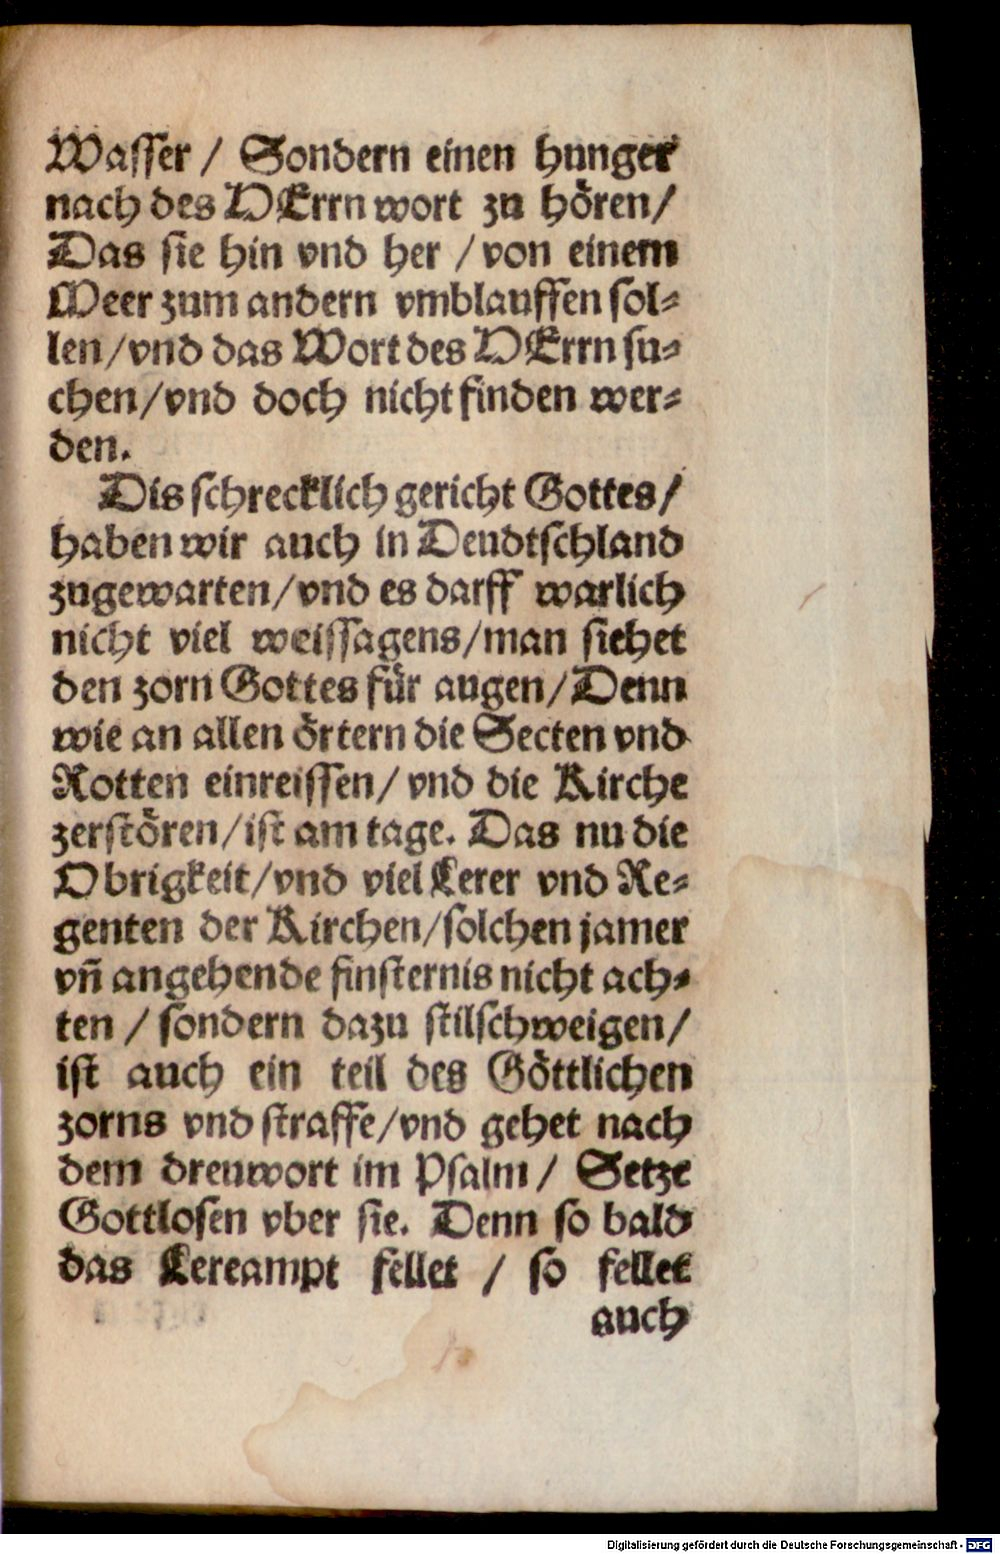 Wasser / Sondern einen hunger
nach des HErrn wort zu hören/
Das sie hin vnd her / von einem
Meer zum andern vmblauffen sol⸗
len/vnd das Wort des HErrn su⸗
chen/vnd doch nicht finden wer⸗
den.
Dis schrecklich gericht Gottes/
haben wir auch in Deudtschland
zugewarten/vnd es darff warlich
nicht viel weissagens/man siehet
den zorn Gottes für augen/Denn
wie an allen örtern die Secten vnd
Rotten einreissen/ vnd die Kirche
zerstören/ist am tage. Das nu die
Obrigkeit/vnd viel Lerer vnd Re⸗
genten der Kirchen/solchen jamer
vñ angehende finsternis nicht ach⸗
ten / sondern dazu stilschweigen/
ist auch ein teil des Göttlichen
zorns vnd straffe/vnd gehet nach
dem dreuwort im Psalm / Setze
Gottlosen vber sie. Denn so bald
das Lereampt fellet / so fellet
auch
Digitalisierung gefördert durch die Deutsche Forschungsgemeinschaft - DFG